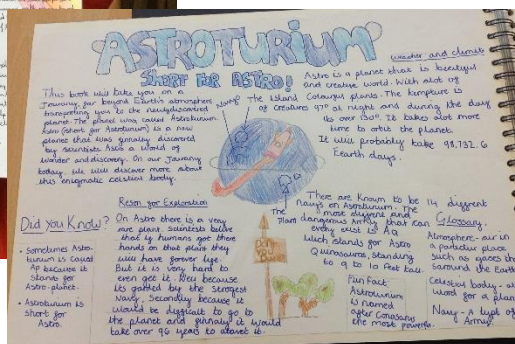 ASTROTURIUM
SHORT FOR ASTRO!
This book will take you on a
Journey, far beyond Earth's atmosphere
transporting you to the newlydiscovered
planet. The planet was called Astroturium
Astro (short for Astroturium) is a new
planet that was finnaly discovered
by scientists Astro is a world of
wonder and discovery. On our Journey
today, we will discover more about
this enigmatic celestial body.
weather and climate
Astro is a planet that is beautiful
and creative world. With alot of
plants. The tempture is
97° at night and during the day
its over 130°. It takes alot more
time to orbit the planet.
It will probably take 98,732.6
Fearth days.
The Island
of Creatures
The
Plant
Reson for Exploration
On Astro there is a very
rare plant. Scientists belive
that if humans got there
hands on that plant they
will have forever life.
But it is very hard to
even get it.
because it's
gaurded by the strogest
Navy. Secondly because it
would be difficult to go to
the planet and finnaly it would
take over 96 years to
it.
Did You Know?
• Sometimes Astro-
turium is called
Ap because it
stands for
Astro-planet.
• Astroturium is
short for
Astro.
Don't
You
There are known to be 14 different
navy's on Astroturium. The
most diligent and
dangerous Army that can
every exist is AQ
which stands for Astro
Quinosaurus, Standing
to 9 to 10 feet tall.
Fun Fact
Astroturium
is named
after
the most powerful.
Glossary
Atmosphere - air in
a particular place
such as gases th
sarround the Earth
Celestial body - a
word for a plan
Navy - A type of
Army.